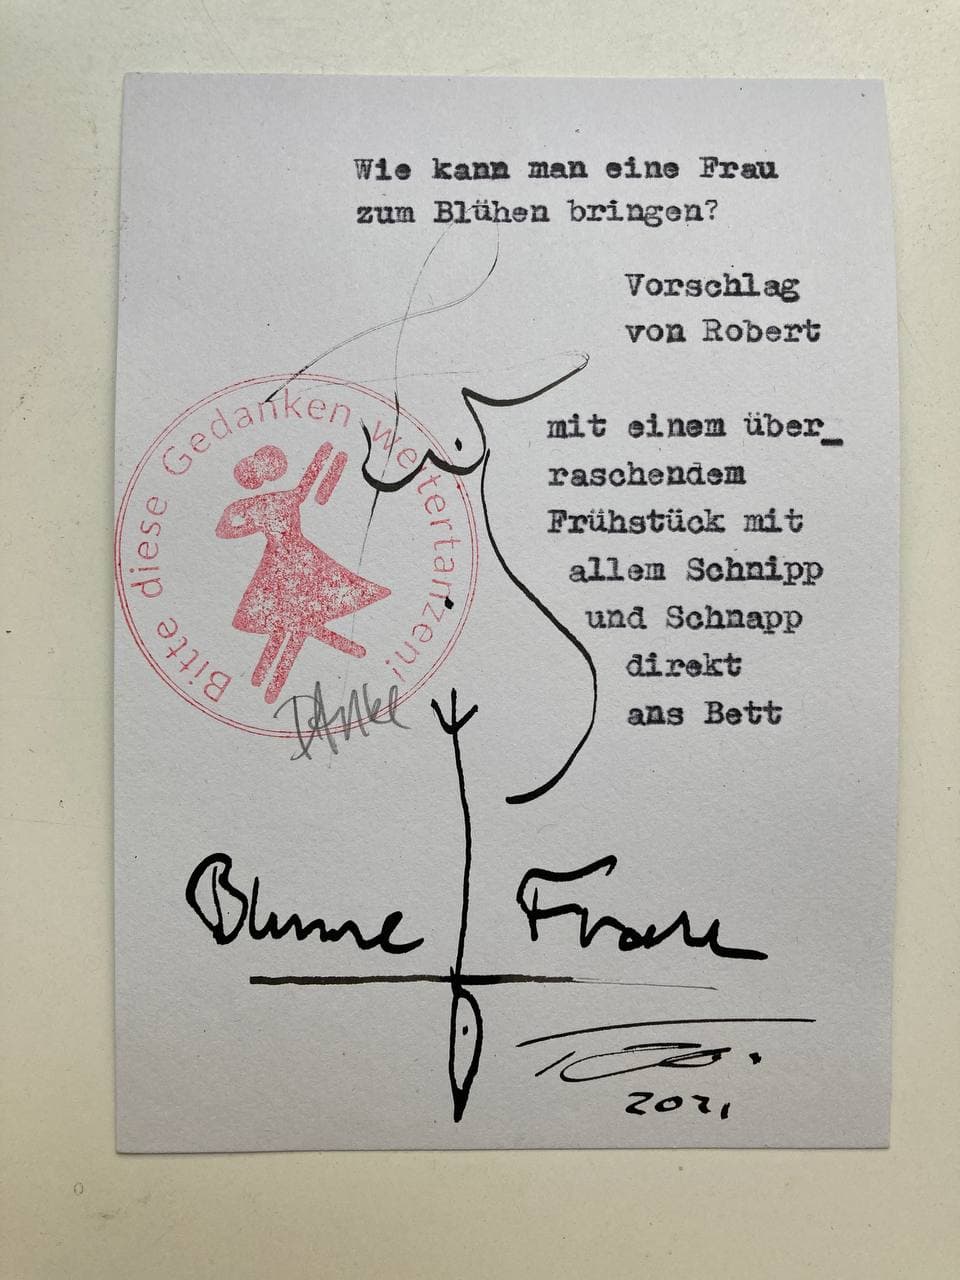 Wie kann man eine Frau
zum Blühen bringen?
Vorschlag
von Robert
mit einem über_
raschendem
Frühstück mit
allem Schnipp
und Schnapp
direkt
ans Bett
Bitte diese Gedanken weitertanzen!
DANKE
Blume Frau
2021